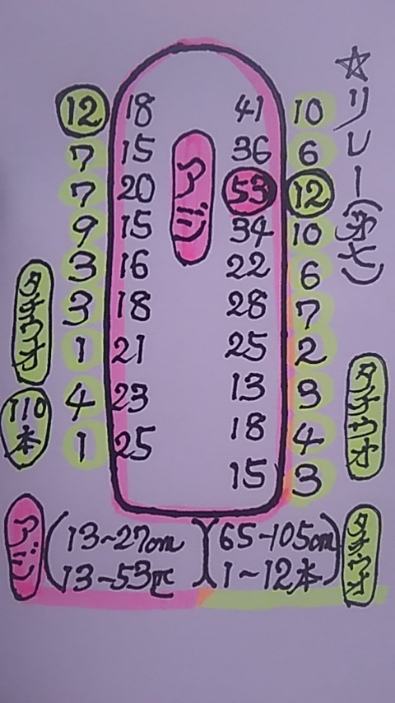 ☆リレー(第七)
12 18 41 10
7 15 36 6
7 20 アジ 53 12
9 15 34 10
3 16 22 6
タチウオ 3 18 28 7
1 21 25 2
110本 4 23 13 3 タチウオ
1 25 18 4
15 3
アジ (13~27cm)(65-105cm) タチウオ
(13-53匹)(1~12本)